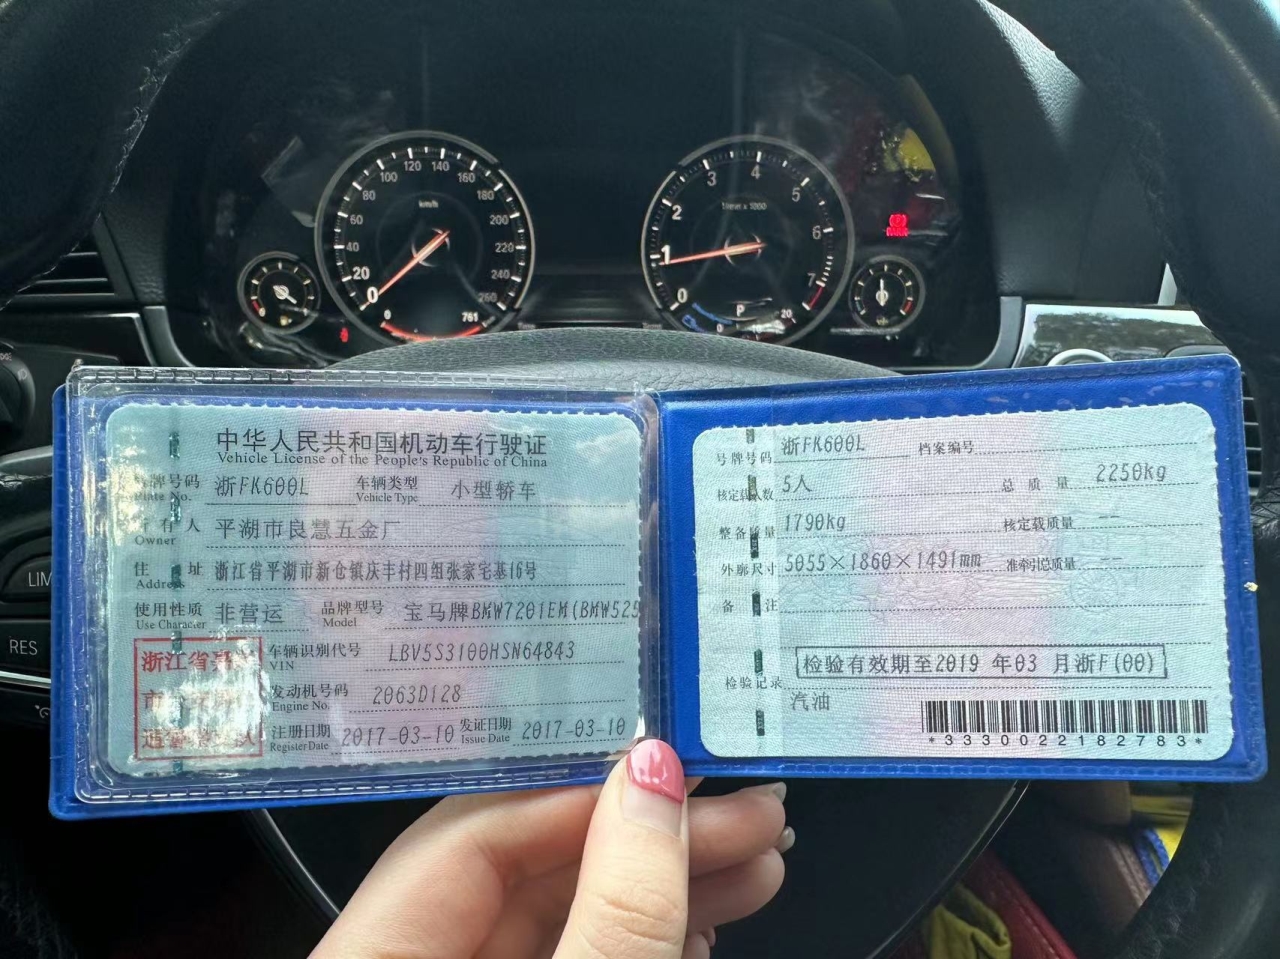 120 140
100 160
80 180
60 km/h 200
40 220
20 240
0 260
0 761
3 4 5
2 1/min x 1000 6
1 7
0 P 20
0
LIM
RES
中华人民共和国机动车行驶证
Vehicle License of the People's Republic of China
号牌号码 浙FK600L 车辆类型 小型轿车
Plate No. Vehicle Type
所有人 平湖市良慧五金厂
Owner
住址 浙江省平湖市新仓镇庆丰村四组张家宅基16号
Address
使用性质 非营运 品牌型号 宝马牌BMW7201EM(BMW525
Use Character Model
浙江省 车辆识别代号 LBV5S3100HSN64843
VIN
市 发动机号码 2063D128
Engine No.
注册日期 2017-03-10 发证日期 2017-03-10
Register Date Issue Date
号牌号码 浙FK600L 档案编号
核定载人数 5人 总质量 2250kg
整备质量 1790kg 核定载质量 --
外廓尺寸 5055×1860×1491mm 准牵引总质量 --
备注
检验有效期至2019 年03 月浙F(00)
检验记录
汽油
*3330022182783*